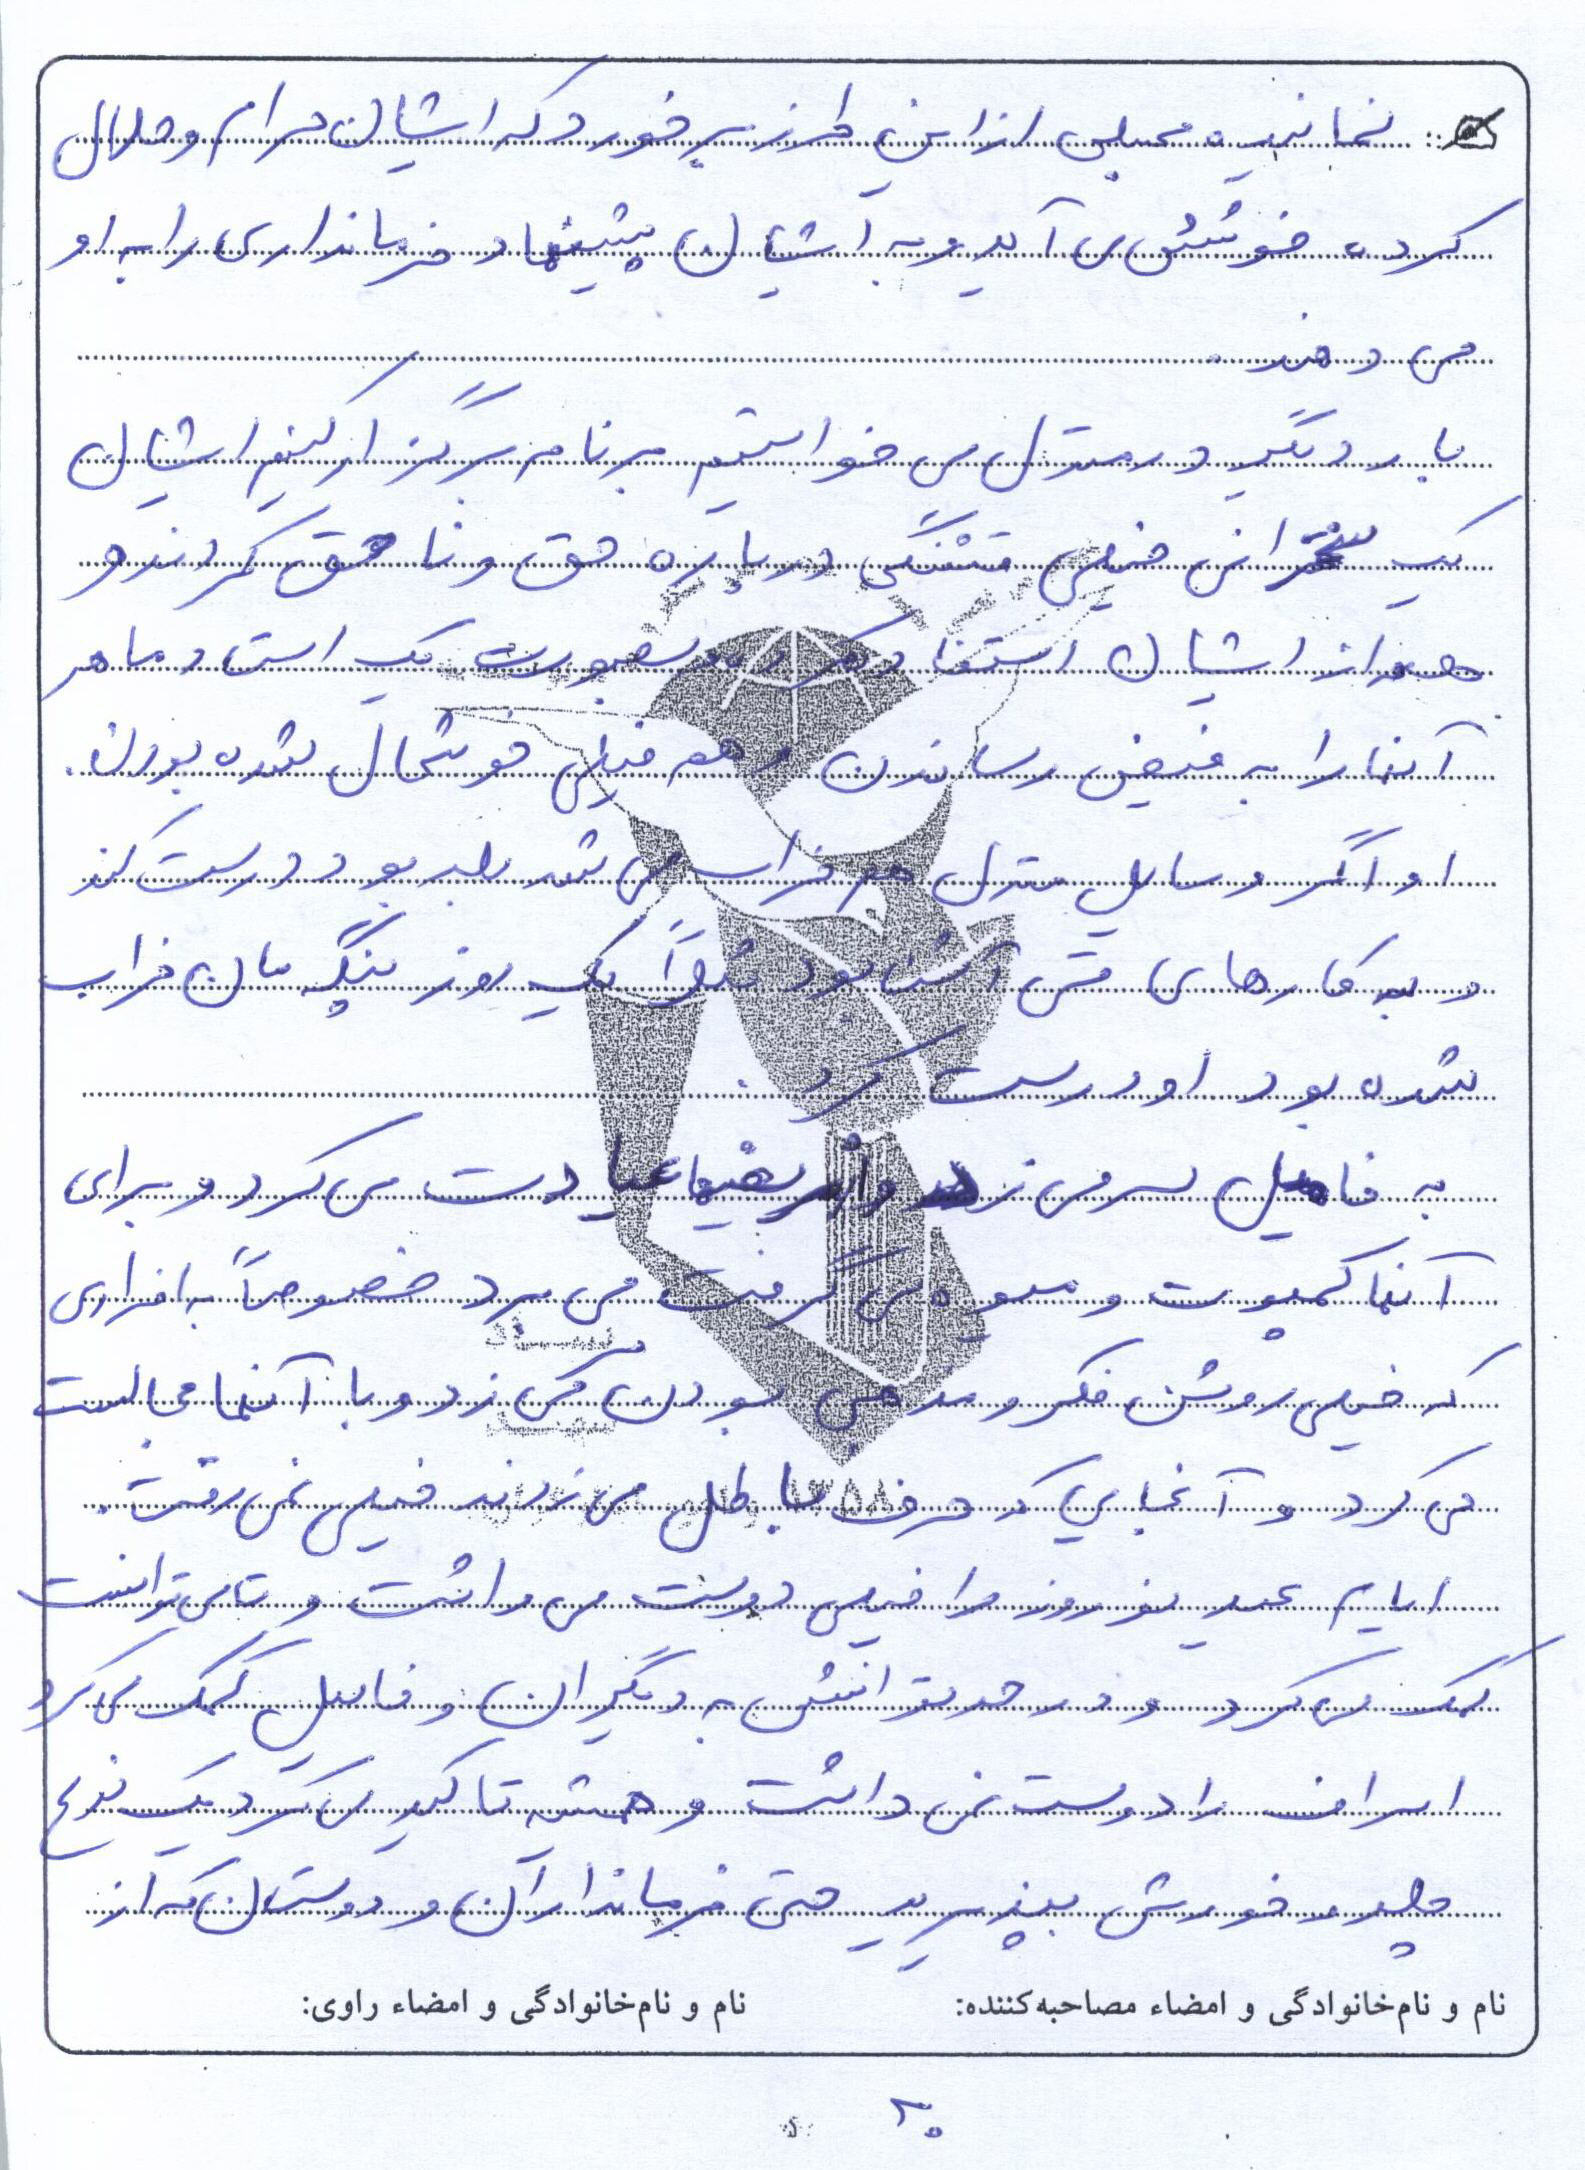 نماینده مجلس از این طرز برخورد که ایشان حرام و حلال
کرده خوشش می آید و به ایشان پیشنهاد فرمانداری را به او
می دهند.
بار دیگر در منزل می خواستیم برنامه برگزار کنیم ایشان
یک سخنرانی خیلی قشنگی درباره حق و ناحق کردند و
همه از ایشان استفاده کردند بصورت یک استاد ماهر
آنها را به فیض رساندن و هم خیلی خوشحال شده بودن.
او اگر وسایل منزل هم خراب می شد بلد بود درست کند
و به کارهای فنی آشنا بود مثلاً یک روز پنکه مان خراب
شده بود او درست کرد.
به فامیل سر می زد و از مریضیها عیادت می کرد و برای
آنها کمپوت و میوه می گرفت می برد خصوصاً به افرادی
که خیلی روشن فکر و مذهبی بودن سر می زد و با آنها مجالست
می کرد و آنجایی که حرف باطل می زدند خیلی نمی رفت.
ایام عید نوروز را خیلی دوست می داشت و تا می توانست
کمک می کرد و در حد توانش به دیگران و فامیل کمک می کرد
اسراف را دوست نمی داشت و همیشه تاکید می کرد یک نوع
چلو و خورش بپزید حتی فرمانداران و دوستان که از
نام و نام‌خانوادگی و امضاء مصاحبه‌کننده:
نام و نام‌خانوادگی و امضاء راوی:
۲۰